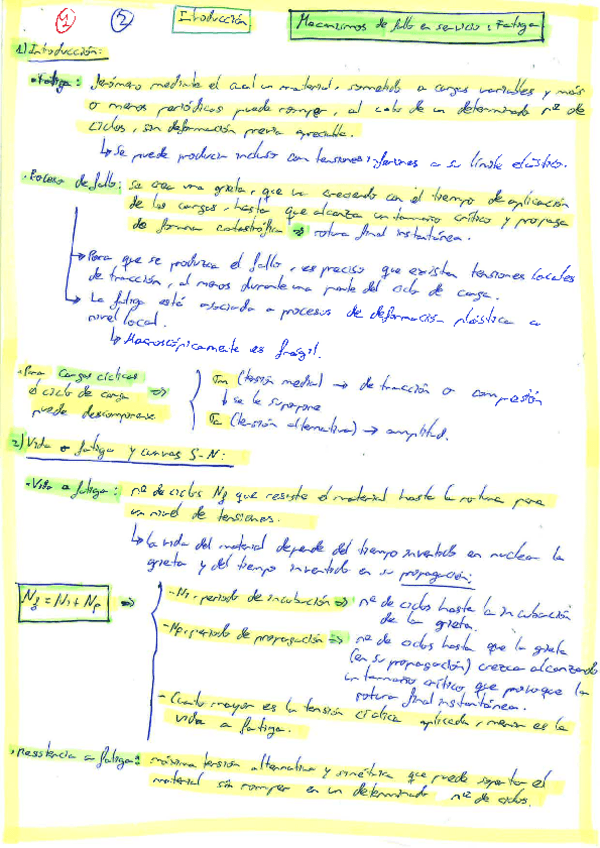 1 2 Introducción Mecanismos de fallo en servicio: Fatiga
1) Introducción:
• Fatiga: fenómeno mediante el cual un material, sometido a cargas variables y más
o menos periódicas puede romper, al cabo de un determinado nº de
ciclos, sin deformación previa apreciable.
↳ Se puede producir incluso con tensiones inferiores a su límite elástico.
• Proceso de fallo: se crea una grieta, que va creciendo con el tiempo de aplicación
de las cargas, hasta que alcanza un tamaño crítico y propaga
de forma catastrófica ⇒ rotura final instantánea.
→ Para que se produzca el fallo, es preciso que existan tensiones locales
de tracción, al menos durante una parte del ciclo de carga.
→ La fatiga está asociada a procesos de deformación plástica a
nivel local.
↳ Macroscópicamente es frágil.
• Para cargas cíclicas
el ciclo de carga ⇒
puede descomponerse
σm (tensión media) → de tracción o compresión
↓ se le superpone
σa (tensión alternativa) → amplitud.
2) Vida a fatiga y curvas S-N:
• Vida a fatiga: nº de ciclos Nf que resiste el material hasta la rotura para
un nivel de tensiones.
↳ La vida del material depende del tiempo invertido en nuclear la
grieta y del tiempo invertido en su propagación:
Nf = Ni + Np ⇒
- Ni: periodo de incubación ⇒ nº de ciclos hasta la incubación
de la grieta.
- Np: periodo de propagación ⇒ nº de ciclos hasta que la grieta
(en su propagación) crezca alcanzando
un tamaño crítico que provoque la
rotura final instantánea.
- Cuanto mayor es la tensión cíclica aplicada, menor es la
vida a fatiga.
• Resistencia a fatiga: máxima tensión alternativa y simétrica que puede soportar el
material sin romper en un determinado nº de ciclos.